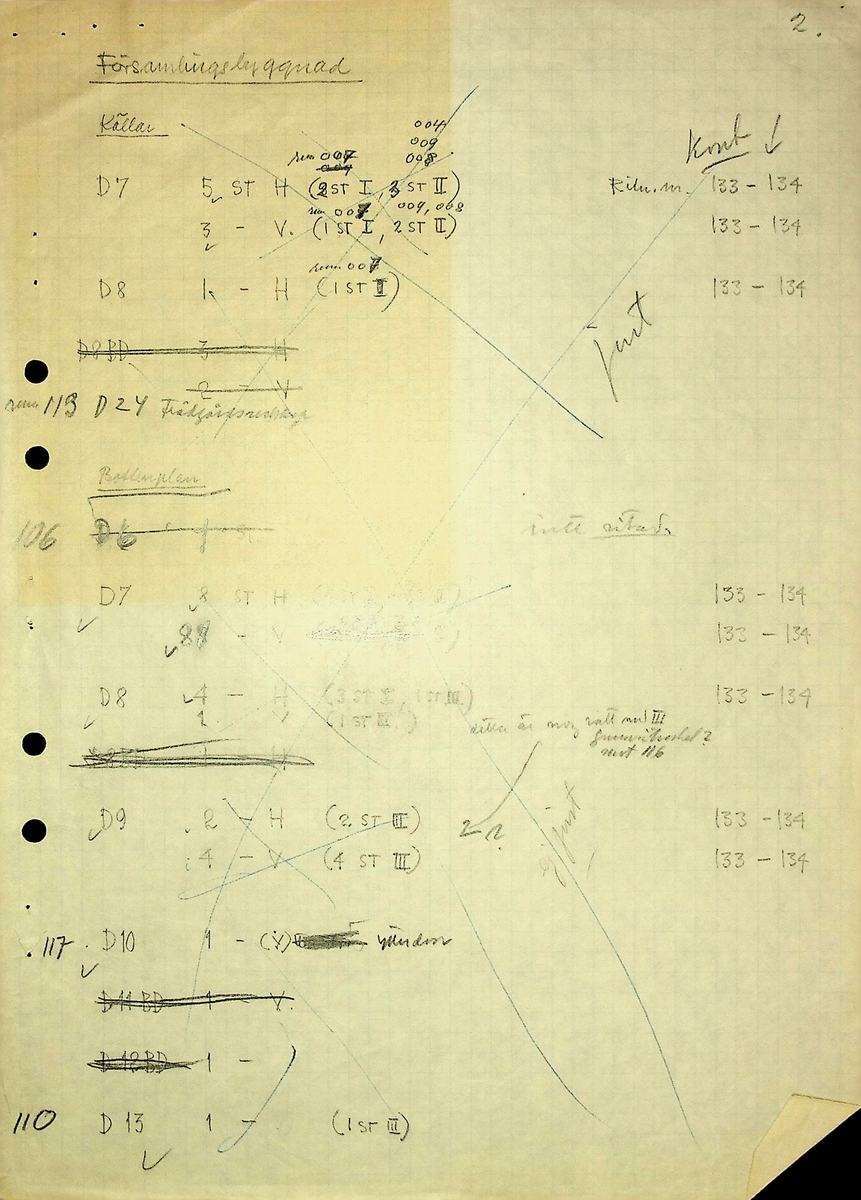 2.
Församlingsbyggnad
Källar
004
009
rum 007 008
Kont
D7 5 ST H (2 ST I, 3 ST II) Ritn.nr. 133 - 134
rum 007 009, 008
3 - V. (1 ST I, 2 ST II) 133 - 134
rum 007
D8 1 - H (1 ST II) 133 - 134
just
D8BD 3 - H
2 - V
rum 113 D24 Trädgårdsredskap
Bottenplan
106 D6 1 ST inte ritad
D7 8 ST H 133 - 134
- V 133 - 134
D8 4 - H (3 ST I, 1 ST III) 133 - 134
1 V (1 ST III) detta är nog rätt nr III
rum 116
1
D9 2 - H (2 ST III) 2 ? 133 - 134
ej just
4 - V (4 ST III) 133 - 134
117 D10 1 - (V) ytterdörr
D11 BD 1 - V.
D12BD 1 -
110 D13 1 - (1 ST III)